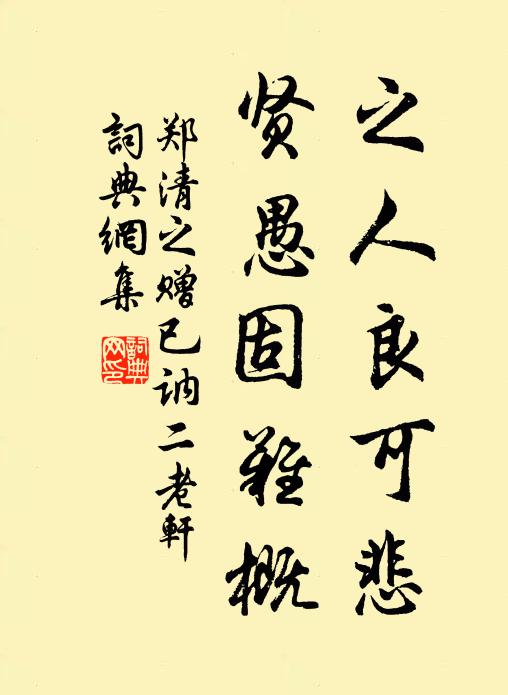 之人良可悲
贤愚固难概
郑清之赠已讷二老軒
詞典網集
詞典網印